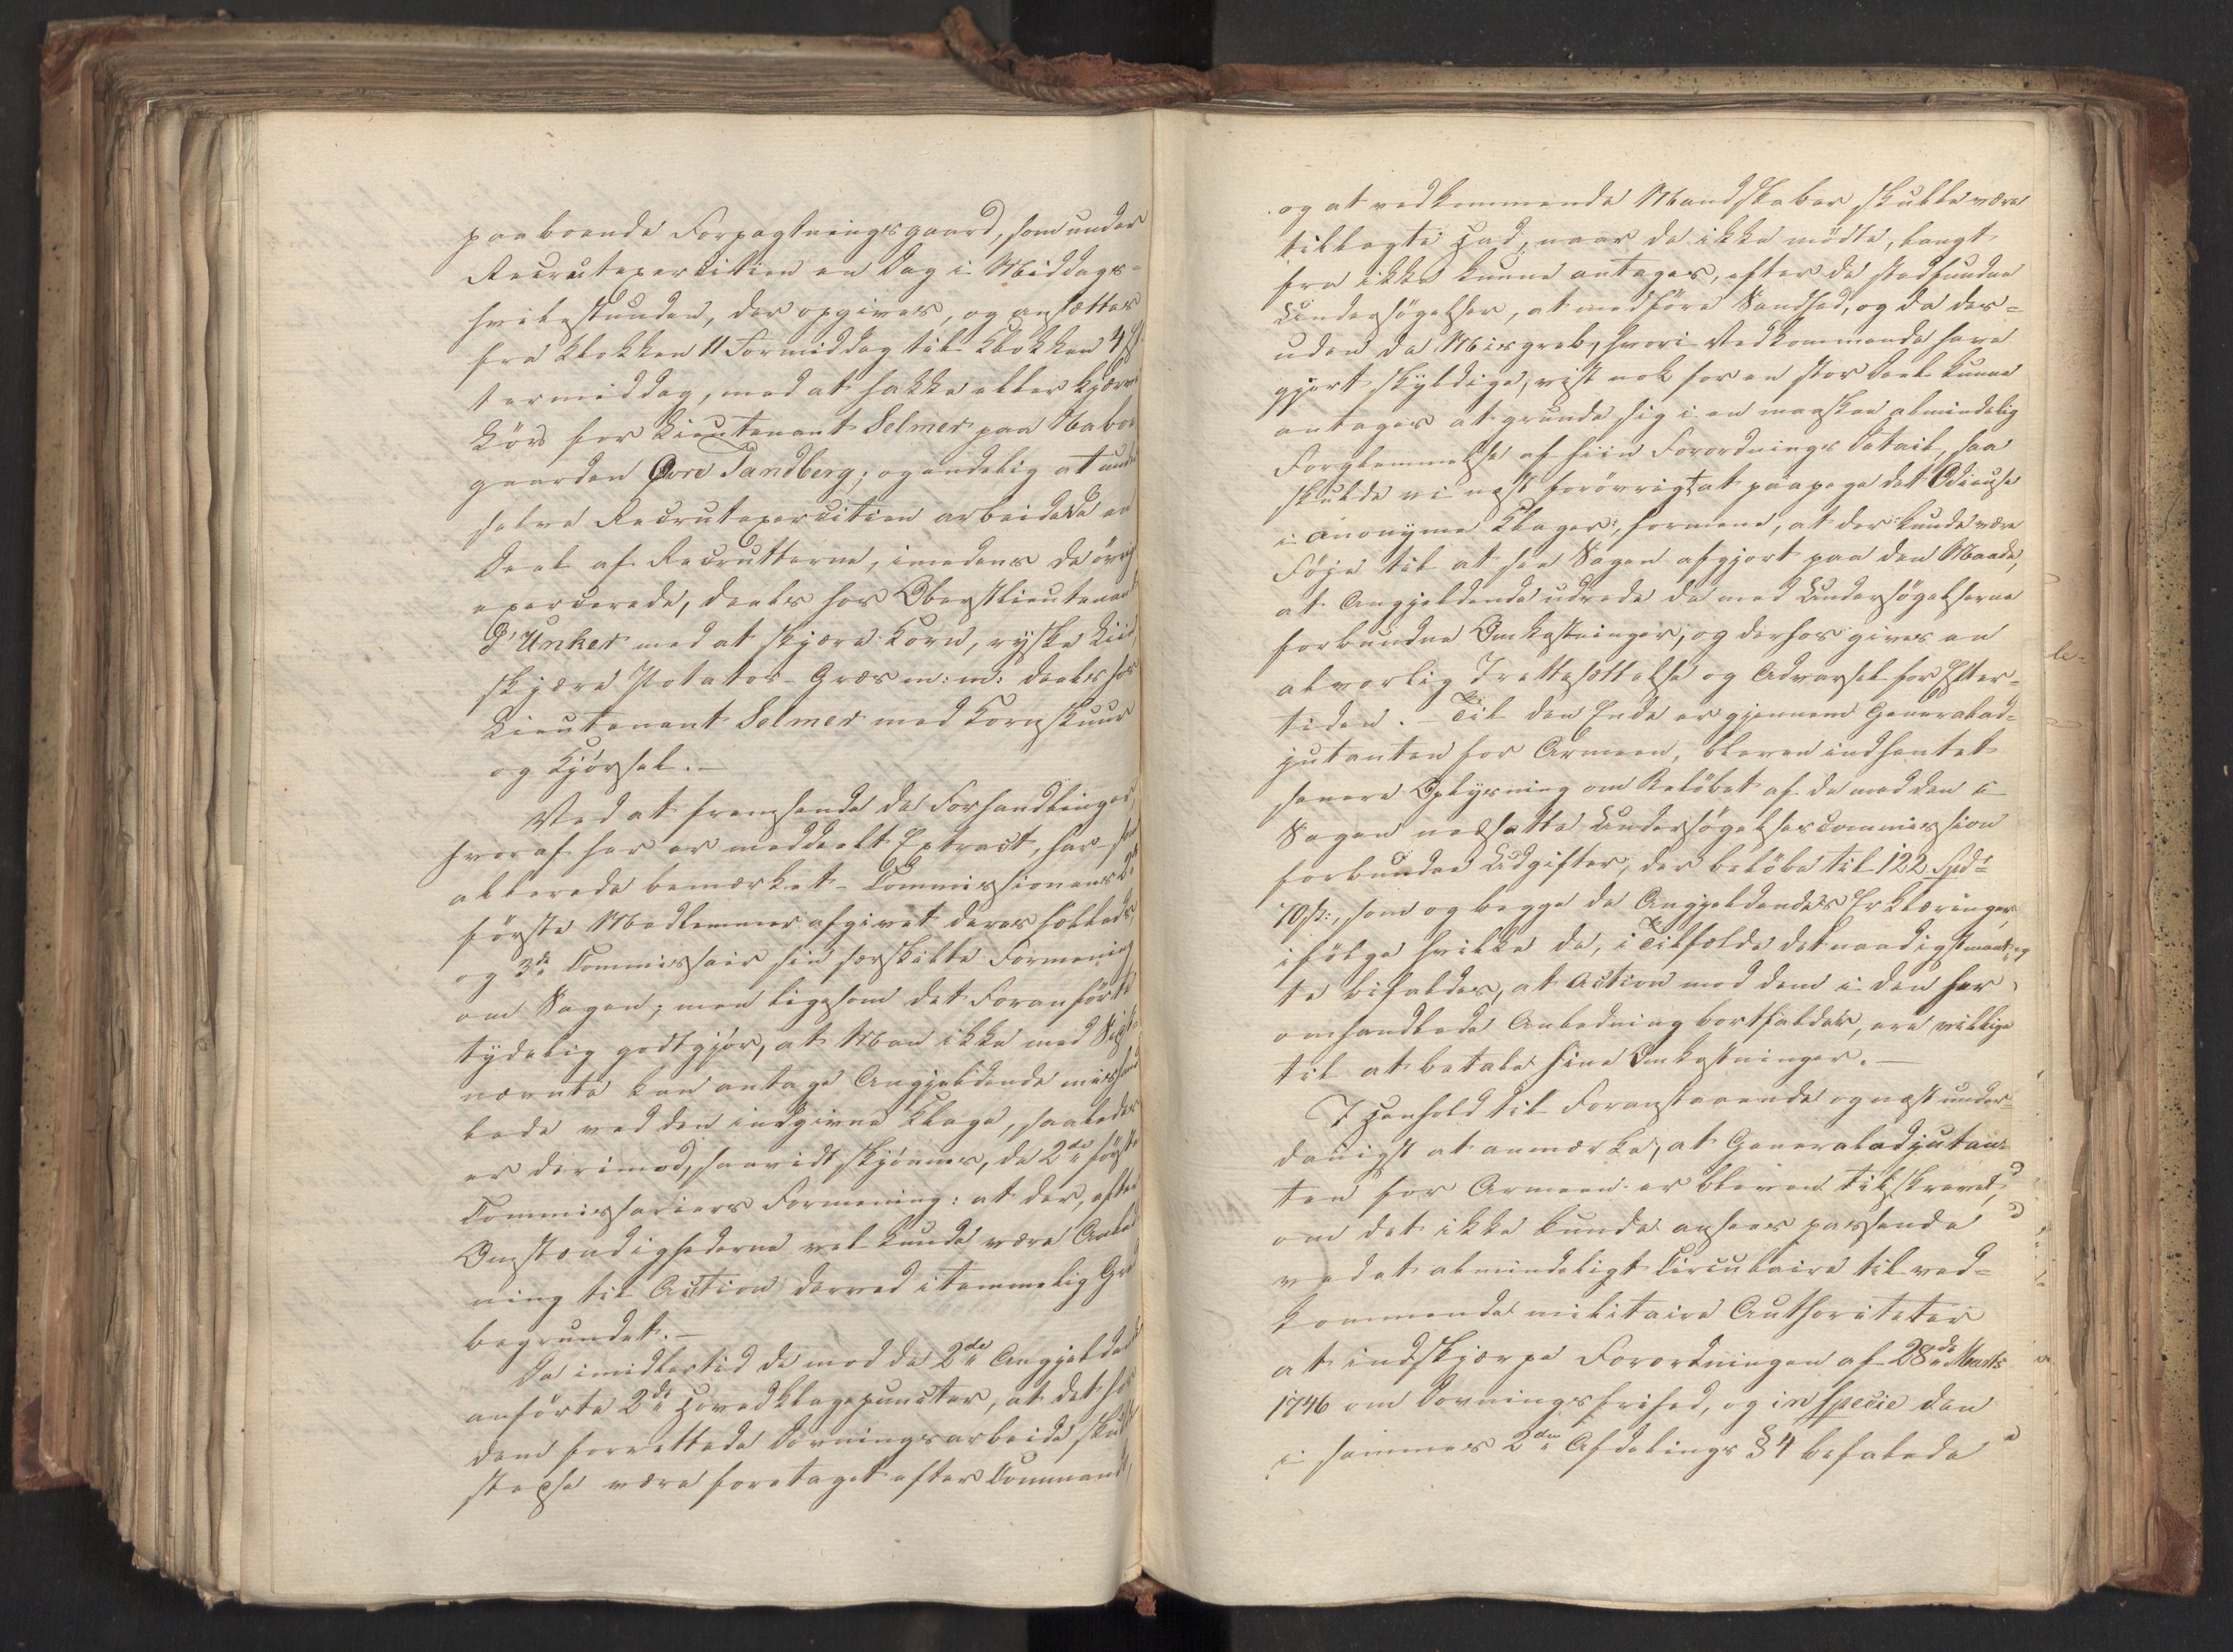 paaboende Forpagtningsgaard, som under
Recrutexercitien en Dag i Middags-
hvilestunden, der opgives, og ansættes
fra Klokken 11 Formiddag til Klokken 4 Ef-
termiddag, med at hakke eller kjøre
Kørs for Lieutenant Selmer paa Nabo-
gaarden Øvre Sandberg; og endelig at under
selve Recrutexercitien arbeidede en
Deel af Recrutterne, imedens de øvrige
exercerede, deels hos Oberstlieutenant
d'Unker med at skjære Korn, ryske Liin,
skjære Potatos-Græs m: m: deels hos
Lieutenant Selmer med Kornskuur
og Kjørsel.—
Ved at fremsende de Forhandlinger,
hvoraf her er meddeelt Extract, har som
allerede bemærket - Commissionens 2de
første Medlemmer afgivet deres felleds,
og 3die Commissair sin særskilte Formening
om Sagen; men ligesom det Foranførte
tydelig godtgjør, at Man ikke med Sidst-
nævnte kan antage Angjeldende mishand-
lede ved den indgivne Klage, saaledes
er derimod, saavidt skjønnes, de 2de første
Commissariers Formening: at der, efter
Omstændighederne vel kunde være Anled-
ning til Action derved i temmelig Grad
begrundet.—
Da imidlertid de mod de 2de Angjeldende
anførte 2de Hovedklagepuncter, at det hos
dem forrettede Sovningsarbeide skulde
stedse være foretaget efter Commando,
og at vedkommende Mandskaber skulle være
tillagte Had, naar de ikke mødte, langt
fra ikke kunne antages, efter de stedfundne
Undersøgelser, at medføre Sandhed, og da des-
uden de Misgreb, hvori Vedkommende have
gjort skyldige, vist nok for en stor Deel kunne
antages at grunde sig i en maaskee almindelig
Forglemmelse af hiin Forordnings Detail, saa
skulde vi næst forøvrigt at paapege det Odieuse
i anonyme Klager, formene, at der kunde være
Føje til at see Sagen afgjort paa den Maade,
at Angjeldende udrede de med Undersøgelserne
forbundne Omkostninger, og derhos gives en
alvorlig Irettesættelse og Advarsel for Efter-
tiden. — Til den Ende er gjennem Generalad-
jutanten for Armeen, bleven indhentet
senere Oplysning om Beløbet af de med den i
Sagen nedsatte Undersøgelsescommission
forbundne Udgifter, der beløbe til 122 Spd:
10 sk:, som og begge de Angjeldendes Erklæringer,
ifølge hvilke de, i Tilfælde det naadigst maat-
te bifaldes, at Action mod dem i den her
omhandlede Anledning bortfalder, ere villige
til at betale hine Omkostninger.—
I Henhold til Foranstaaende og næst under-
danigst at anmærke, at Generaladjutan-
ten for Armeen er bleven tilskrevet,
om det ikke kunde ansees passende
ved et almindeligt Circulaire til ved-
kommende militaire Authoriteter
at indskjærpe Forordningen af 28de Marts
1746 om Sovningsfrihed, og in specie den
i sammes 2den Afdelings § 4 befalede